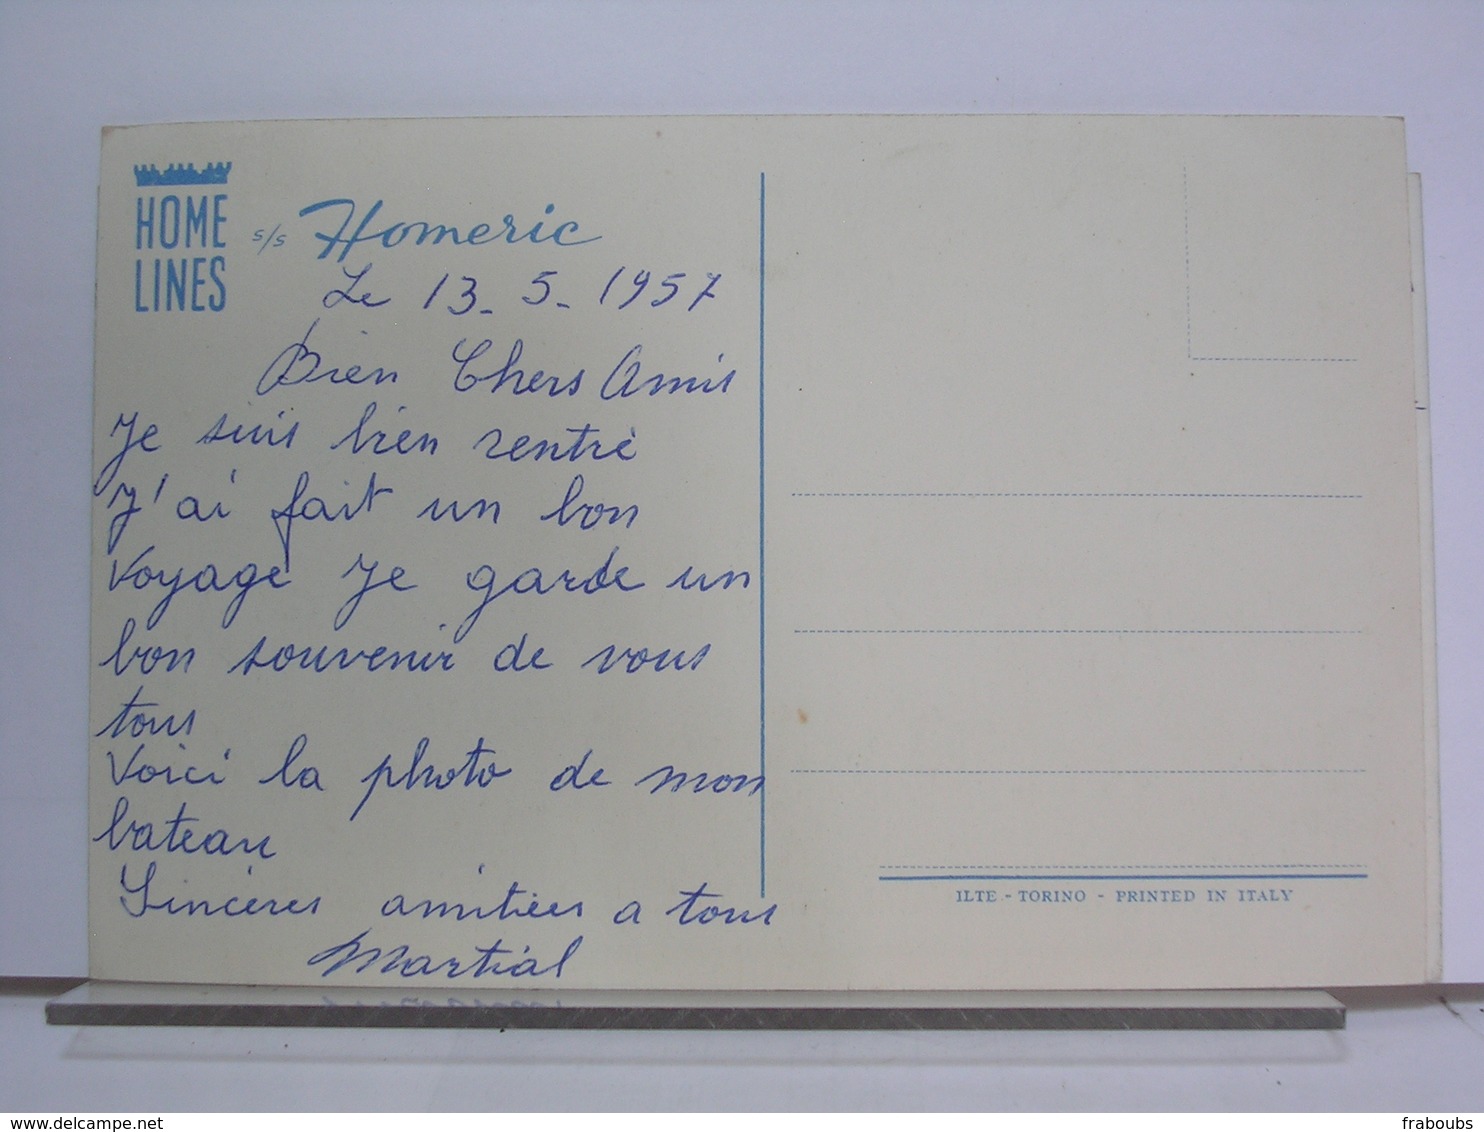 HOME
LINES
s/s Homeric
Le 13-5-1957
Bien Chers Amis
Je suis bien rentré
J'ai fait un bon
Voyage Je garde un
bon souvenir de vous
tous
Voici la photo de mon
bateau
Sincères amitiées a tous
Martial
ILTE - TORINO - PRINTED IN ITALY
delcampe.net
fraboubs